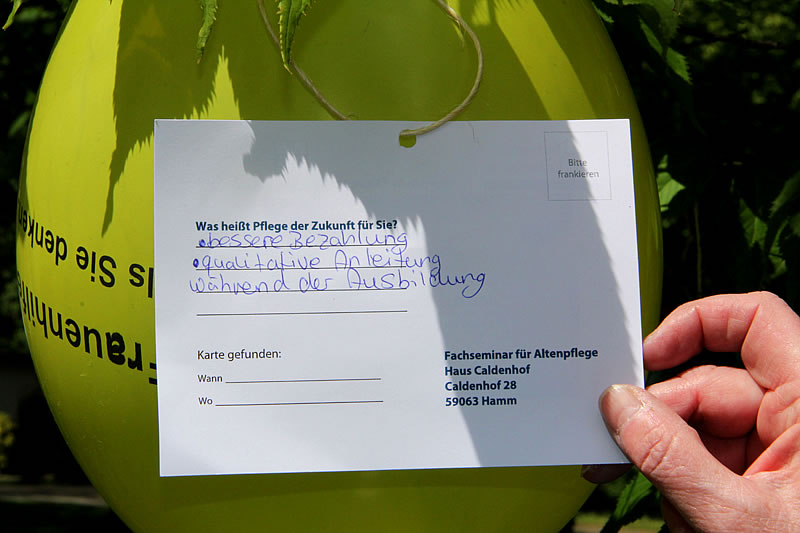 Bitte
frankieren
Was heißt Pflege der Zukunft für Sie?
• bessere Bezahlung
• qualitative Anleitung
während der Ausbildung
Karte gefunden:
Wann
Wo
Fachseminar für Altenpflege
Haus Caldenhof
Caldenhof 28
59063 Hamm
Frauenhil
ls Sie denken